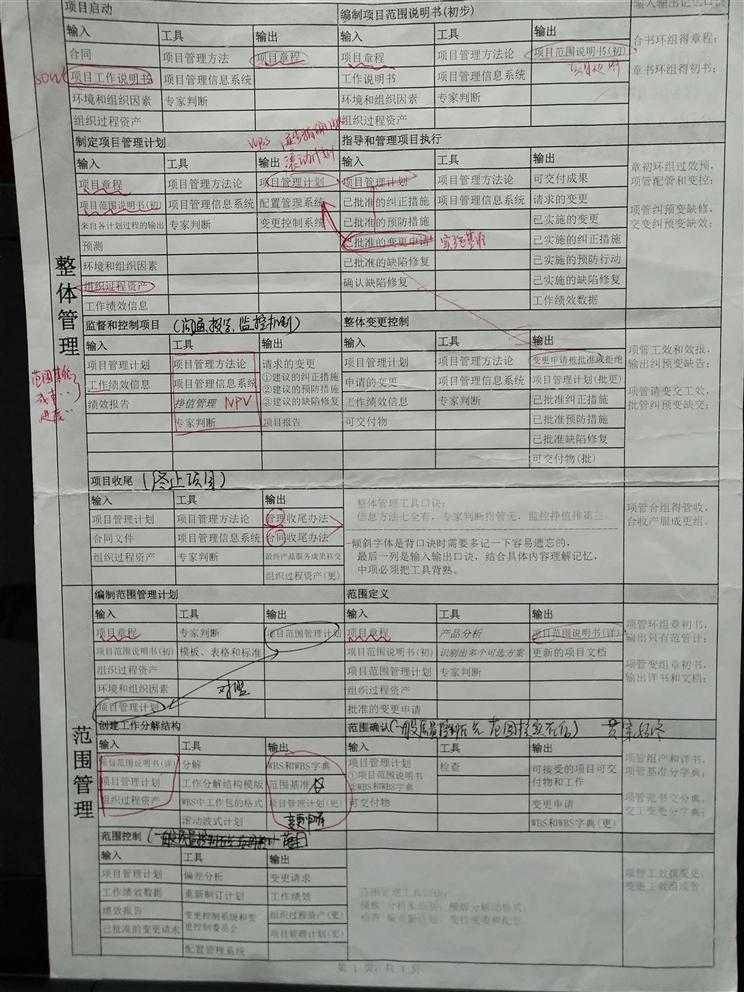 项目启动
编制项目范围说明书(初步)
输入 工具 输出 输入 工具 输出
合同 项目管理方法 项目章程 项目章程 项目管理方法论 项目范围说明书(初)
台书环组得章程;
sow 项目工作说明书 项目管理信息系统 工作说明书 项目管理信息系统
章书环组得初书;
环境和组织因素 专家判断 环境和组织因素 专家判断
组织过程资产 组织过程资产
WBS
滚动计划
制定项目管理计划 指导和管理项目执行
输入 工具 输出 输入 工具 输出
项目章程 项目管理方法论 项目管理计划 项目管理计划 项目管理方法论 可交付成果
章初环组过效预,
项目范围说明书(初) 项目管理信息系统 配置管理系统 已批准的纠正措施 项目管理信息系统 请求的变更
项管配管和变控;
来自各计划过程的输出 专家判断 变更控制系统 已批准的预防措施 已实施的变更
项管纠预变缺修,
预测 已批准的变更申请 已实施的纠正措施
交变纠预变缺效;
环境和组织因素 已批准的缺陷修复 已实施的预防行动
组织过程资产 确认缺陷修复 已实施的缺陷修复
工作绩效信息 工作绩效数据
整体管理
监督和控制项目 整体变更控制
输入 工具 输出 输入 工具 输出
项目管理计划 项目管理方法论 请求的变更 项目管理计划 项目管理方法论 变更申请被批准或拒绝
项管工效和效报,
工作绩效信息 项目管理信息系统 ①建议的纠正措施 申请的变更 项目管理信息系统 项目管理计划(批更)
输出纠预变缺告;
绩效报告 挣值管理 NPV ②建议的预防措施 工作绩效信息 专家判断 已批准纠正措施
③建议的缺陷修复
项管请变交工效,
专家判断 项目报告 可交付物 已批准预防措施
批管纠预变缺交;
已批准缺陷修复
可交付物(批)
范围基线
成本..
进度..
项目收尾 (终止项目)
输入 工具 输出
项目管理计划 项目管理方法论 管理收尾办法
合同文件 项目管理信息系统 合同收尾办法
组织过程资产 专家判断 最终产品服务成果移交
组织过程资产(更)
整体管理工具口诀:
信息方法七全有,专家判断指管无,监控挣值排第三
倾斜字体是背口诀时需要多记一下容易遗忘的,
最后一列是输入输出口诀,结合具体内容理解记忆,
中项必须把工具背熟。
项管合组得管收,
合收产服成更组。
编制范围管理计划 范围定义
输入 工具 输出 输入 工具 输出
项目章程 专家判断 项目范围管理计划 项目章程 产品分析 项目范围说明书(详)
项管环组章初书,
项目范围说明书(初) 模板、表格和标准 项目范围说明书(初) 识别出多个可选方案 更新的项目文档
输出只有范管计;
组织过程资产 项目范围管理计划 专家判断
项管变组章初书,
环境和组织因素 组织过程资产
输出详书和文档;
项目管理计划 批准的变更申请
范围管理
创建工作分解结构 范围确认
输入 工具 输出 输入 工具 输出
项目范围说明书(详) 分解 WBS和WBS字典 项目管理计划 检查 可接受的项目可交付物和工作
项管组产和详书,
项目管理计划 工作分解结构模版 范围基准 ①项目范围说明书
项管基准分字典;
组织过程资产 WBS中工作包的格式 项目管理计划(更) ②WBS和WBS字典
可交付物 变更申请
滚动波式计划 变更申请 WBS和WBS字典(更)
范围控制
输入 工具 输出
项目管理计划 偏差分析 变更请求
工作绩效数据 重新制订计划 工作绩效
绩效报告 变更控制系统和变更控制委员会 组织过程资产(更)
已批准的变更请求 项目管理计划(更)
配置管理系统
第 1 页,共 4 页